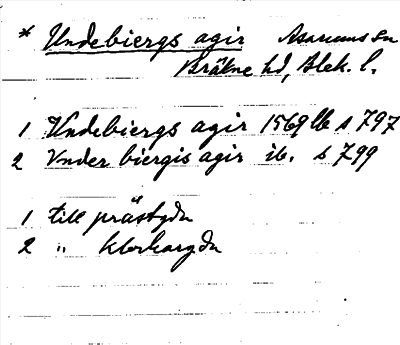 * Undebiergs agir Asarums sn
Bräkne hd, Blek. l.
1 Vndebiergs agir 1569 lb s 797
2 Vnder biergis agir ib. s 799
1 till prästgdn
2 " klockargdn